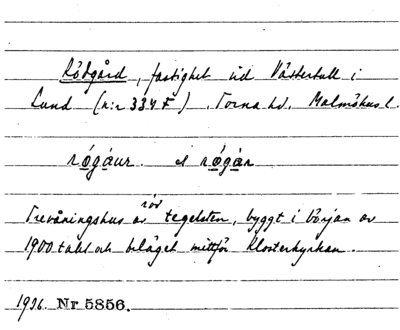 Rödgård, fastighet vid Västertull i
Lund (n:r 334 F). Torna hd, Malmöhus l.
rógáur. el rógár
Trevåningshus av röd tegelsten, byggt i början av
1900 talet och beläget mittför Klosterkyrkan.
1936. Nr 5856.